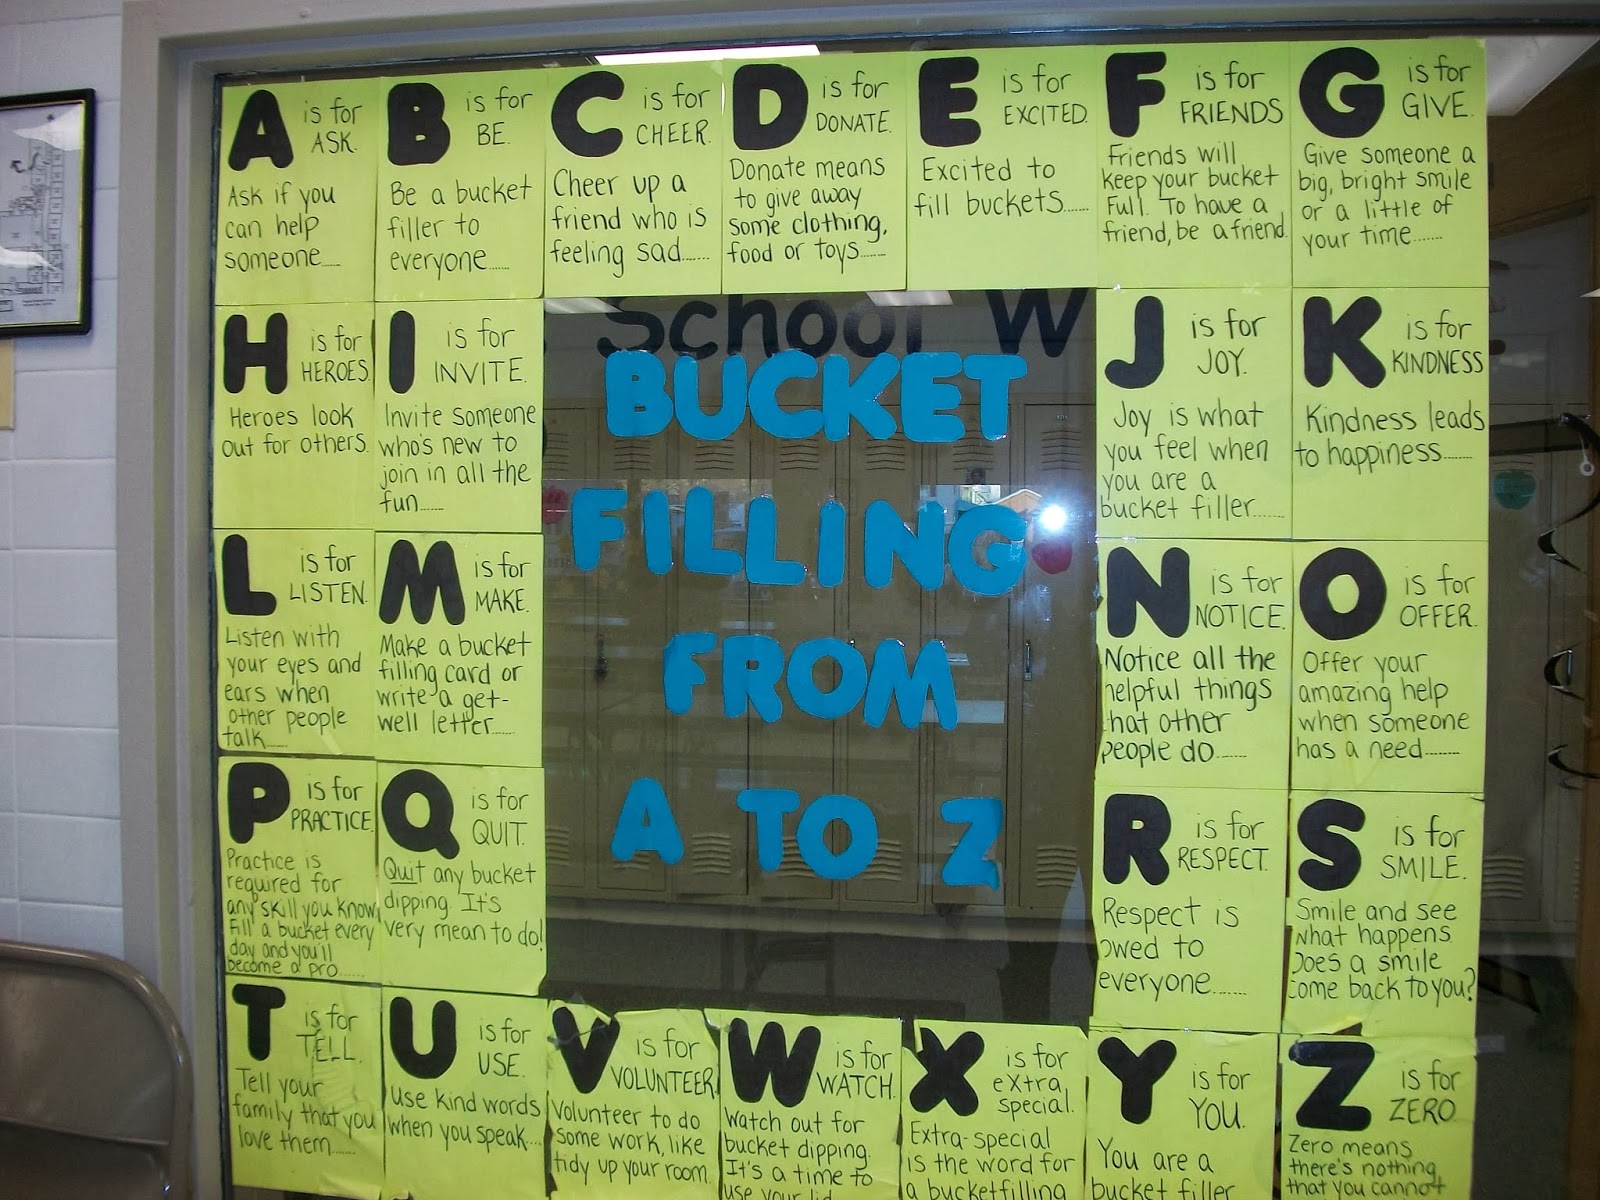 A is for
ASK.
Ask if you
can help
someone.....
B is for
BE.
Be a bucket
filler to
everyone......
C is for
CHEER.
Cheer up a
friend who is
feeling sad.......
D is for
DONATE.
Donate means
to give away
some clothing,
food or toys.......
E is for
EXCITED.
Excited to
fill buckets......
F is for
FRIENDS
Friends will
keep your bucket
Full. To have a
friend, be a friend.
G is for
GIVE.
Give someone a
big, bright smile
or a little of
your time.......
H is for
HEROES.
Heroes look
out for others.
I is for
INVITE.
Invite someone
who's new to
join in all the
fun......
School W
BUCKET
FILLING
FROM
A TO Z
J is for
JOY.
Joy is what
you feel when
you are a
bucket filler.......
K is for
KINDNESS
Kindness leads
to happiness.......
L is for
LISTEN.
Listen with
your eyes and
ears when
other people
talk......
M is for
MAKE.
Make a bucket
filling card or
write a get-
well letter......
N is for
NOTICE.
Notice all the
helpful things
that other
people do.......
O is for
OFFER.
Offer your
amazing help
when someone
has a need........
P is for
PRACTICE.
Practice is
required for
any skill you know,
Fill a bucket every
day and you'll
become a pro......
Q is for
QUIT.
Quit any bucket
dipping. It's
very mean to do!
R is for
RESPECT.
Respect is
owed to
everyone.......
S is for
SMILE.
Smile and see
what happens
Does a smile
come back to you?
T is for
TELL.
Tell your
family that you
love them......
U is for
USE.
Use kind words
when you speak....
V is for
VOLUNTEER
Volunteer to do
some work, like
tidy up your room.
W is for
WATCH.
Watch out for
bucket dipping.
It's a time to
use your lid
X is for
eXtra
special.
Extra-special
is the word for
a bucketfilling
Y is for
YOU.
You are a
bucket filler
Z is for
ZERO.
Zero means
there's nothing
that you cannot